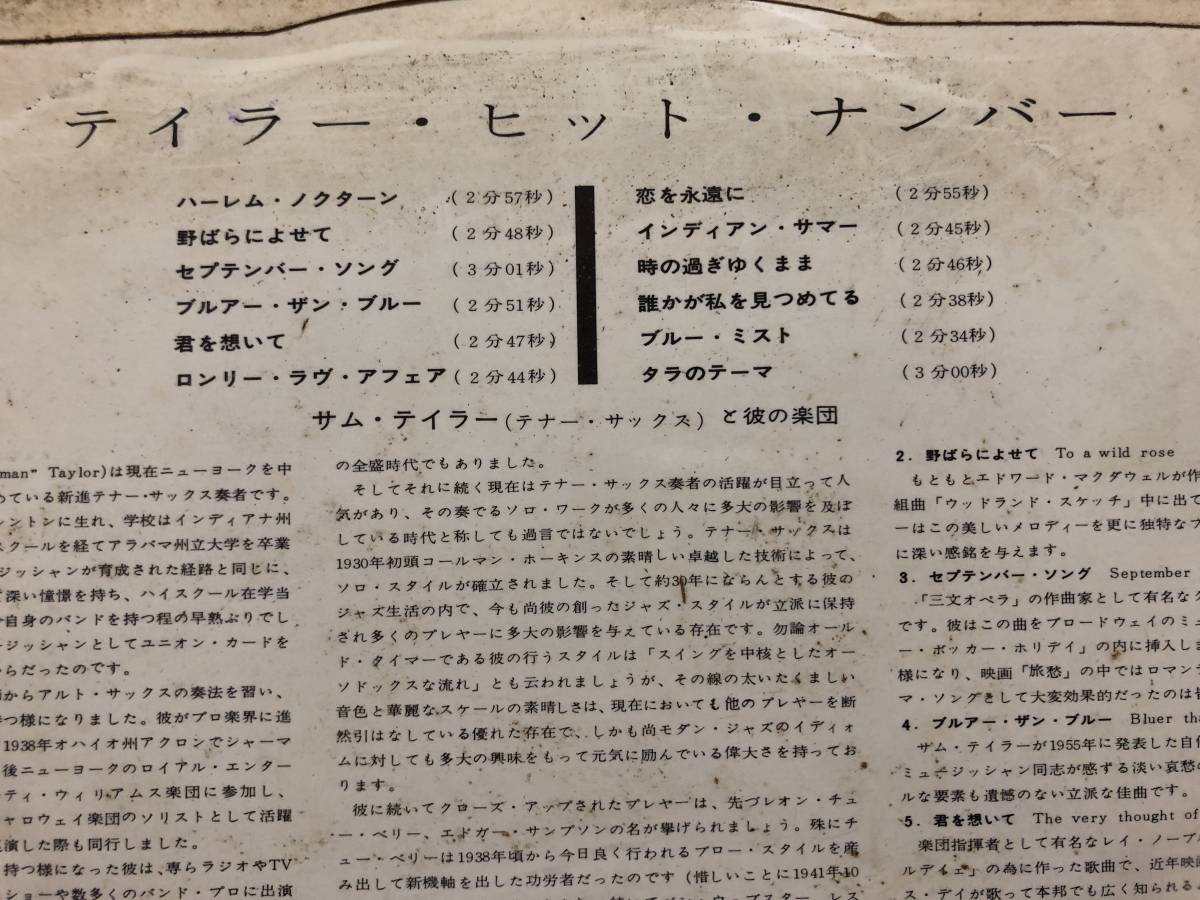 テイラー・ヒット・ナンバー
ハーレム・ノクターン (2分57秒)
野ばらによせて (2分48秒)
セプテンバー・ソング (3分01秒)
ブルアー・ザン・ブルー (2分51秒)
君を想いて (2分47秒)
ロンリー・ラヴ・アフェア (2分44秒)
恋を永遠に (2分55秒)
インディアン・サマー (2分45秒)
時の過ぎゆくまま (2分46秒)
誰かが私を見つめてる (2分38秒)
ブルー・ミスト (2分34秒)
タラのテーマ (3分00秒)
サム・テイラー(テナー・サックス) と彼の楽団
man" Taylor)は現在ニューヨークを中
めている新進テナー・サックス奏者です。
シントンに生れ、学校はインディアナ州
スクールを経てアラバマ州立大学を卒業
ジッシャンが育成された経路と同じに、
深い憧憬を持ち、ハイスクール在学当
自身のバンドを持つ程の早熟ぶりでし
ージッシャンとしてユニオン・カードを
からだったのです。
からアルト・サックスの奏法を習い、
つ様になりました。彼がプロ楽界に進
1938年オハイオ州アクロンでシャーマ
後ニューヨークのロイアル・エンター
ティ・ウィリアムス楽団に参加し、
ャロウェイ楽団のソリストとして活躍
演した際も同行しました。
持つ様になった彼は、専らラジオやTV
ショーや数多くのバンド・プロに出演
の全盛時代でもありました。
そしてそれに続く現在はテナー・サックス奏者の活躍が目立って人
気があり、その奏でるソロ・ワークが多くの人々に多大の影響を及ぼ
している時代と称しても過言ではないでしょう。テナー・サックスは
1930年初頭コールマン・ホーキンスの素晴しい卓越した技術によって、
ソロ・スタイルが確立されました。そして約30年にならんとする彼の
ジャズ生活の内で、今も尚彼の創ったジャズ・スタイルが立派に保持
され多くのプレヤーに多大の影響を与えている存在です。勿論オール
ド・タイマーである彼の行うスタイルは「スイングを中核としたオー
ソドックスな流れ」とも云われましょうが、その線の太いたくましい
音色と華麗なスケールの素晴しさは、現在においても他のプレヤーを断
然引はなしている優れた存在で、しかも尚モダン・ジャズのイディォ
ムに対しても多大の興味をもって元気に励んでいる偉大さを持ってお
ります。
彼に続いてクローズ・アップされたプレヤーは、先づレオン・チュ
ー・ベリー、エドガー・サンプソンの名が挙げられましょう。殊にチ
ュー・ベリーは1938年頃から今日良く行われるブロー・スタイルを産
み出して新機軸を出した功労者だったのです(惜しいことに1941年10
2. 野ばらによせて To a wild rose
もともとエドワード・マクダウェルが作
組曲「ウッドランド・スケッチ」中に出て
ーはこの美しいメロディーを更に独特なフ
に深い感銘を与えます。
3. セプテンバー・ソング September
「三文オペラ」の作曲家として有名なク
です。彼はこの曲をブロードウェイのミュ
ー・ボッカー・ホリデイ」の内に挿入しま
様になり、映画「旅愁」の中ではロマンテ
マ・ソングとして大変効果的だったのは
4. ブルアー・ザン・ブルー Bluer tha
サム・テイラーが1955年に発表した自作
ミュージッシャン同志が感ずる淡い哀愁の
ルな要素も遺憾のない立派な佳曲です。
5. 君を想いて The very thought of
楽団指揮者として有名なレイ・ノーブル
ルディェ」の為に作った歌曲で、近年映画
ス・デイが歌って本邦でも広く知られる